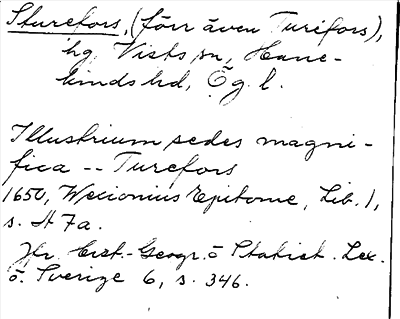 Sturefors, (förr även Turefors),
hg, Vists sn, Hane-
kinds hd, Ög. l.
Illustrium sedes magni-
fica -- Turefors
1650, Wexionius Epitome, Lib. 1,
s. A 7a.
Jfr. Hist.-Geogr. o Statist. Lex.
ö. Sverige 6, s. 346.